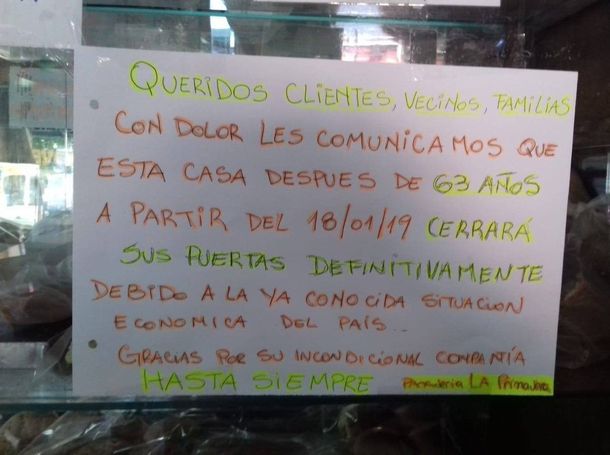 QUERIDOS CLIENTES, VECINOS, FAMILIAS
CON DOLOR LES COMUNICAMOS QUE
ESTA CASA DESPUES DE 63 AÑOS
A PARTIR DEL 18/01/19 CERRARÁ
SUS PUERTAS DEFINITIVAMENTE
DEBIDO A LA YA CONOCIDA SITUACION
ECONOMICA DEL PAÍS...
GRACIAS POR SU INCONDICIONAL COMPAÑÍA
HASTA SIEMPRE Panadería LA Primavera